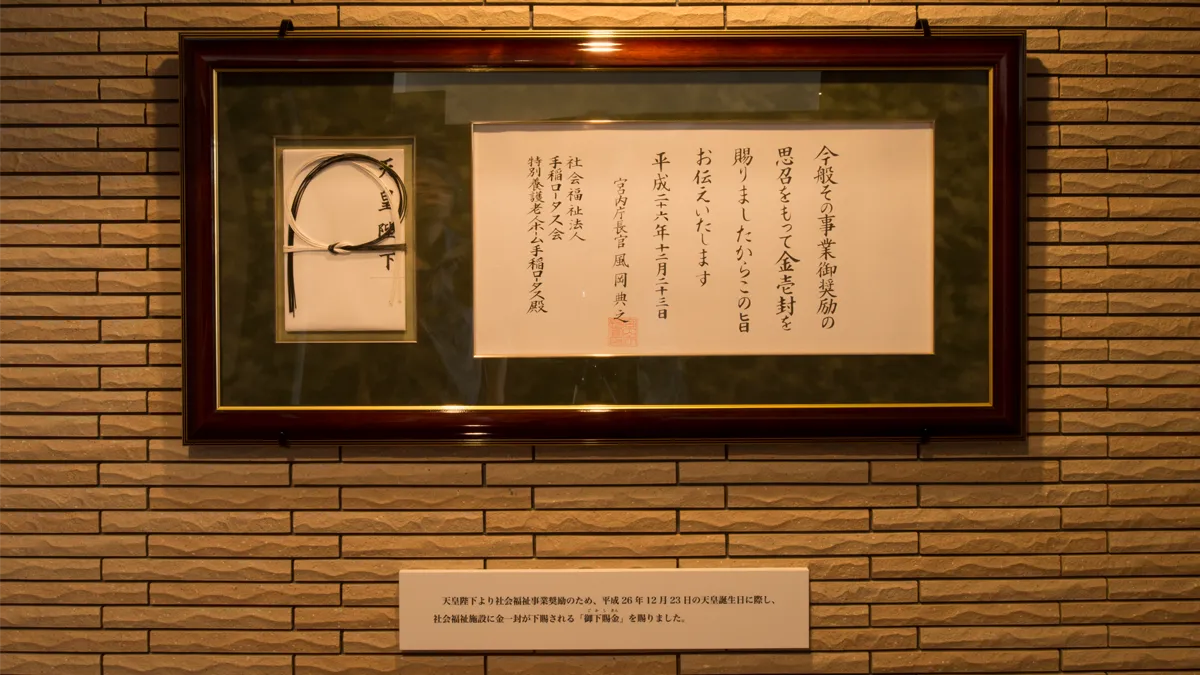 今般その事業御奨励の
思召をもって金壱封を
賜りましたからこの旨
お伝えいたします
平成二十六年十二月二十三日
宮内庁長官風岡典之
社会福祉法人
手稲ロータス会
特別養護老人ホーム手稲ロータス殿
天皇陛下
天皇陛下より社会福祉事業奨励のため、平成26年12月23日の天皇誕生日に際し、
社会福祉施設に金一封が下賜される「御下賜金」を賜りました。